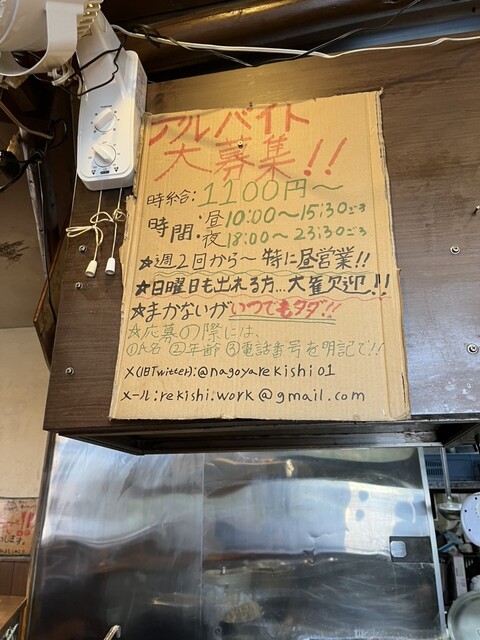 アルバイト
大募集!!
時給:1100円〜
時間・昼10:00〜15:30ごろ
夜18:00〜23:30ごろ
☆週2回から〜特に昼営業!!
☆日曜日も出れる方…大歓迎!!
☆まかないがいつでもタダ!!
☆応募の際には、
①氏名 ②年齢 ③電話番号を明記で!!
X(旧Twitter):@nagoyarekishi01
メール:rekishi.work@gmail.com